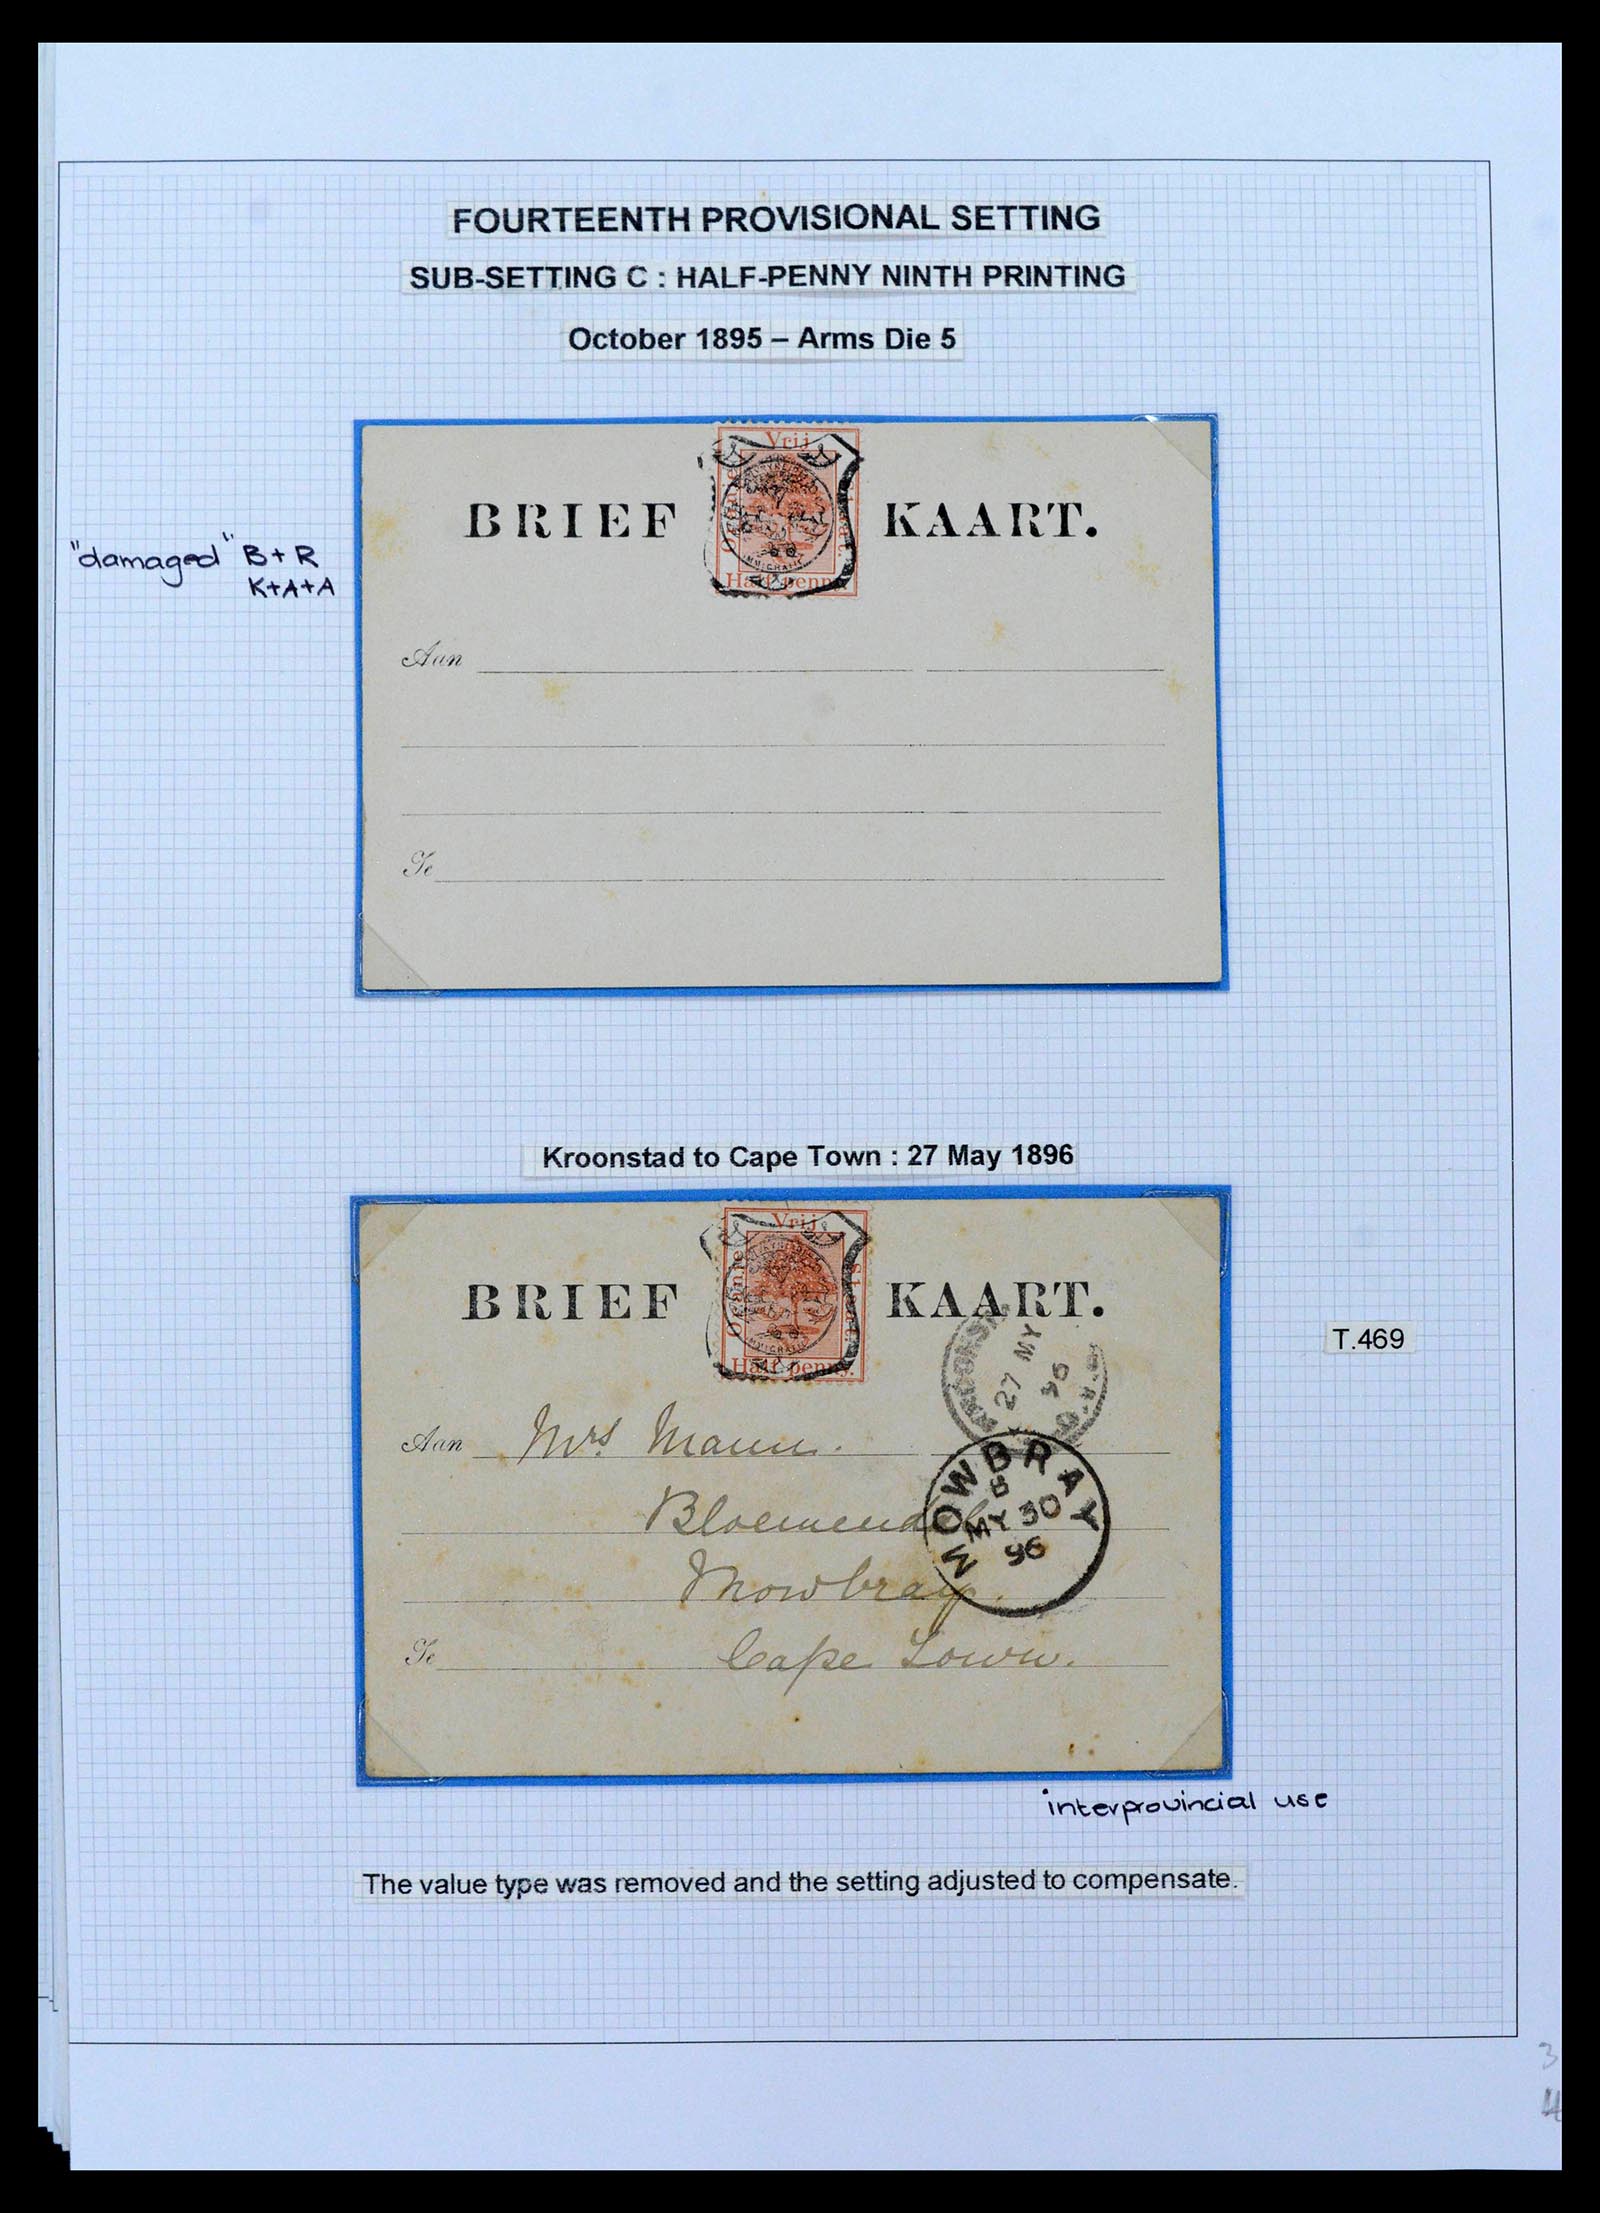 FOURTEENTH PROVISIONAL SETTING
SUB-SETTING C : HALF-PENNY NINTH PRINTING
October 1895 – Arms Die 5
"damaged" B+R
K+A+A
Vrij
BRIEF KAART.
Half penny
Aan
Te
Kroonstad to Cape Town : 27 May 1896
Vrij
Oranje
Staat.
IMMIGRATIE
Half penny.
BRIEF KAART.
27 MY
96
T.469
Aan Mrs. Mann.
MOWBRAY
B
MY 30
96
Bloemendal
Mowbray.
Te Cape Town.
interprovincial use
The value type was removed and the setting adjusted to compensate.
3
4